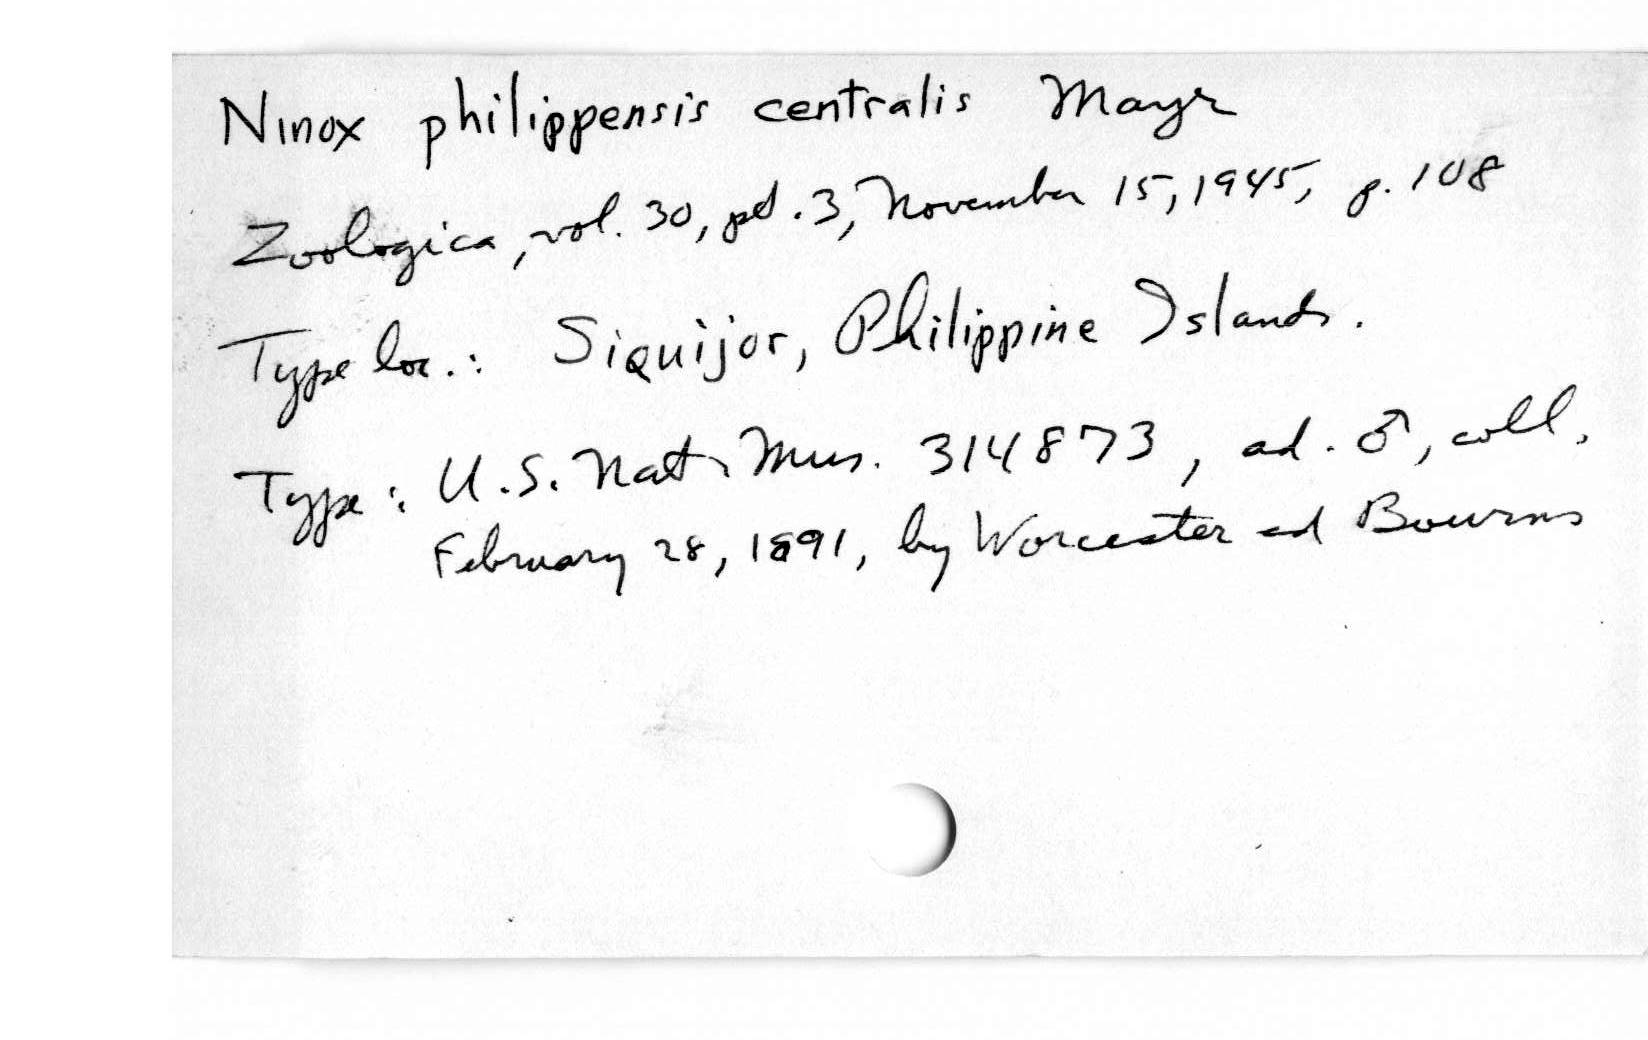 Ninox philippensis centralis Mayr
Zoologica, vol. 30, pt. 3, November 15, 1945, p. 108
Type loc.: Siquijor, Philippine Islands.
Type: U.S. Nat. Mus. 314873, ad. ♂, coll.
February 28, 1891, by Worcester and Bourns